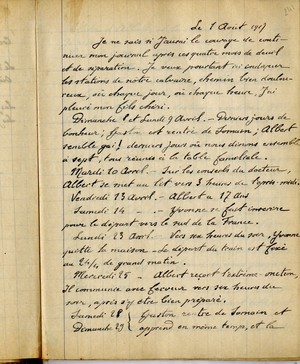 Le 1 Août 1917
Je ne sais si j'aurai le courage de conti-
nuer mon journal après ces quatre mois de deuil
et de séparation. Je veux pourtant ici indiquer
les stations de notre calvaire, chemin bien doulou-
reux, où chaque jour, où chaque heure, j'ai
pleuré mon fils chéri.
Dimanche 8 et Lundi 9 Avril. - Derniers jours de
bonheur; Gaston est rentré de Somain; Albert
semble gai! derniers jours où nous dînons ensemble
à sept, tous réunis à la table familiale.
Mardi 10 Avril. - Sur les conseils du docteur,
Albert se met au lit vers 3 heures de l'après-midi.
Vendredi 13 Avril - Albert a 17 ans
Samedi 14 - - Yvonne se fait inscrire
pour le départ vers le sud de la France.
Lundi 23 Avril. Vers six heures du soir, Yvonne
quitte la maison. Le départ du train est fixé
au 24/4, de grand matin.
Mercredi 25 - Albert reçoit l'extrême-onction,
Il communie avec ferveur vers six heures du
soir, après s'y être bien préparé.
Samedi 28 Gaston rentre de Somain et
Dimanche 29 apprend en même temps, et la